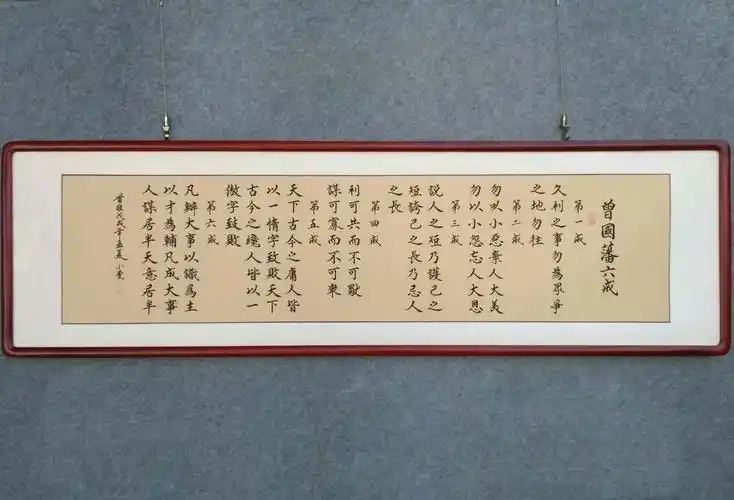 曾國藩六戒
第一戒
久利之事勿為眾爭
之地勿往
第二戒
勿以小惡棄人大美
勿以小怨忘人大恩
第三戒
說人之短乃護己之
短誇己之長乃忌人
之長
第四戒
利可共而不可獨
謀可寡而不可衆
第五戒
天下古今之庸人皆
以一惰字致敗天下
古今之纔人皆以一
傲字致敗
第六戒
凡辦大事以識為主
以才為輔凡成大事
人謀居半天意居半